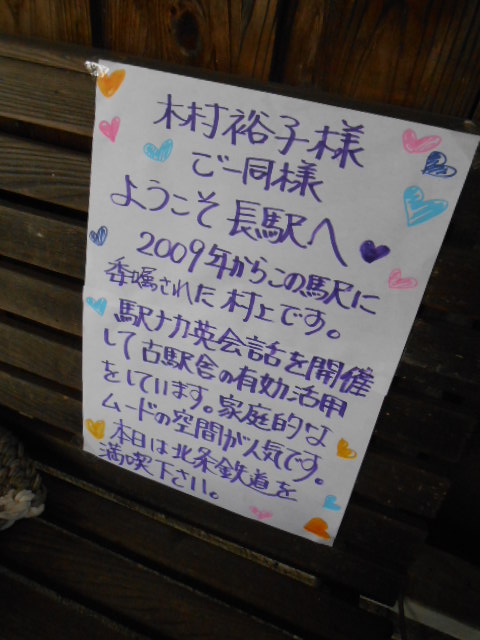 木村裕子様
ご一同様
ようこそ長駅へ
2009年からこの駅に
委嘱された村上です。
駅ナカ英会話を開催
して古駅舎の有効活用
をしています。家庭的な
ムードの空間が人気です。
本日は北条鉄道を
満喫下さい。